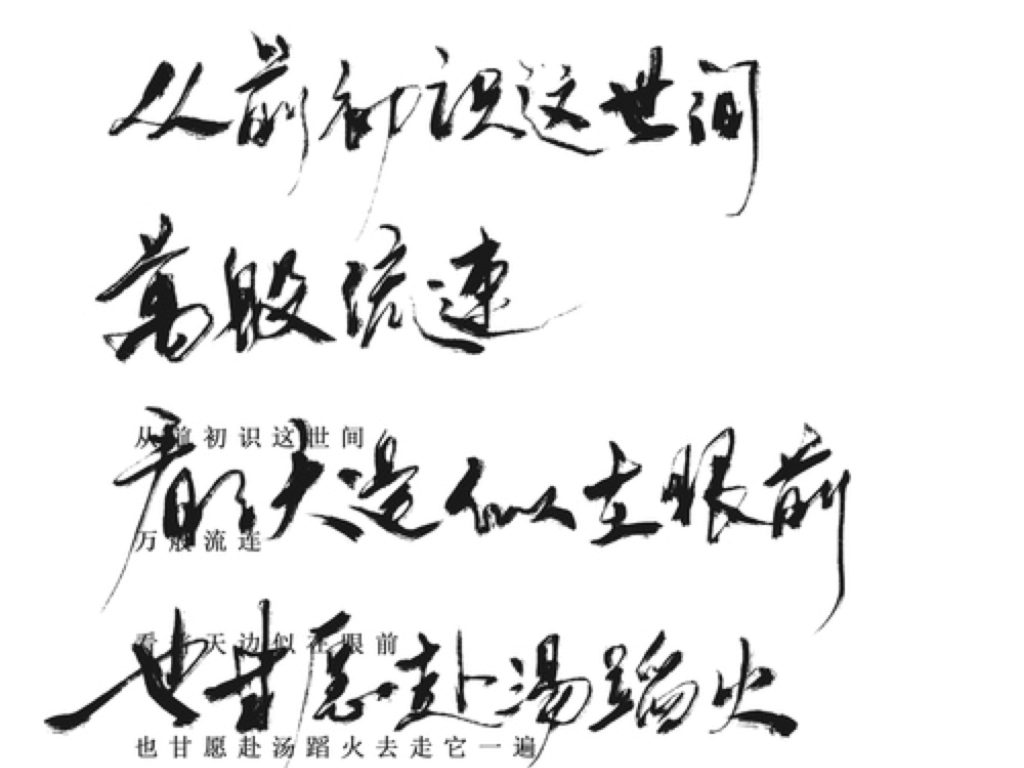 从前初识这世间
萬般流連
看着天边似在眼前
也甘愿赴汤蹈火
从前初识这世间
万般流连
看着天边似在眼前
也甘愿赴汤蹈火去走它一遍